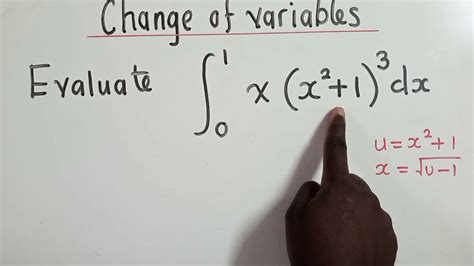 Change of variables
Evaluate ∫₀¹ x (x²+1)³ dx
u = x² + 1
x = √u-1